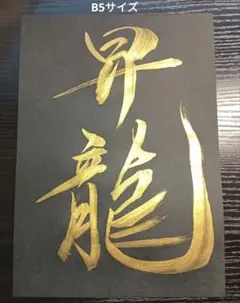 B5サイズ
昇
龍